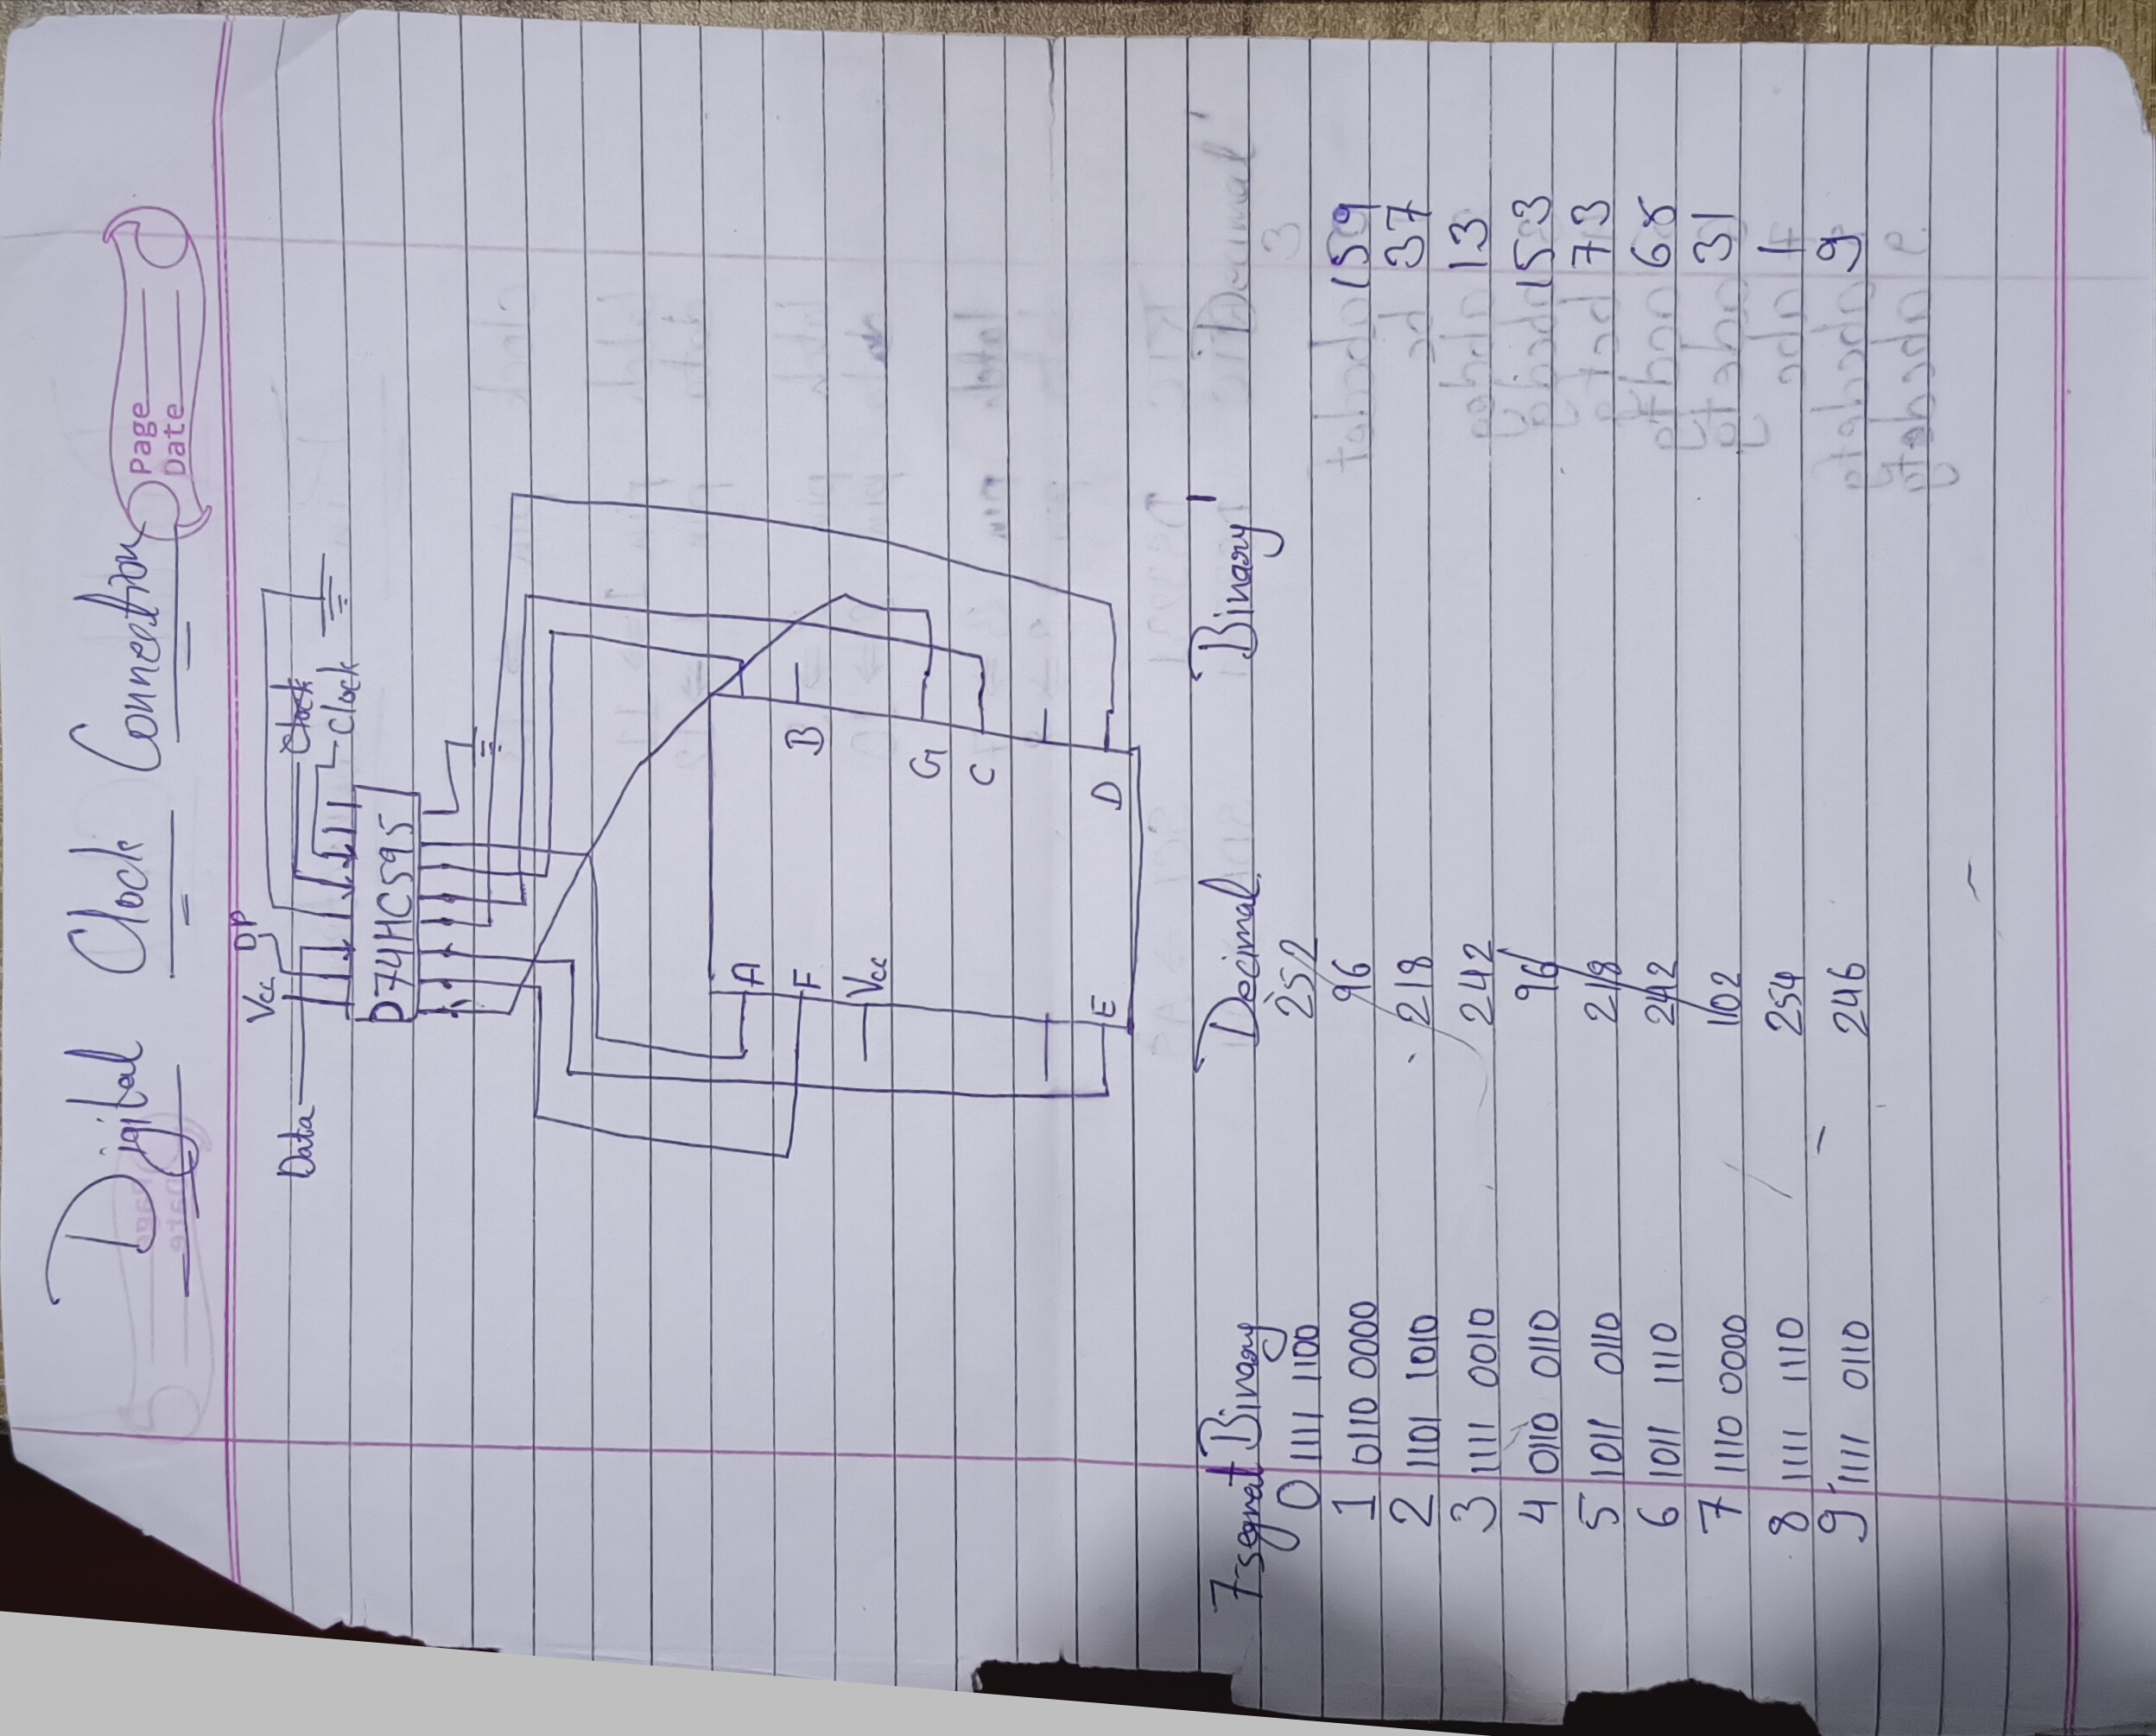 Digital Clock Connection
Page
Date
Vcc DP
Data
Clock
Clock
D74HC595
A
F
B
Vcc
G
C
E D
7-segnat Binary Decimal Binary' Decimal'
0 1111 1100 252 3
1 0110 0000 96 159
2 1101 1010 218 37
3 1111 0010 242 13
4 0110 0110 96 153
5 1011 0110 218 73
6 1011 1110 242 65
7 1110 0000 102 31
8 1111 1110 254 1
9 1111 0110 246 9